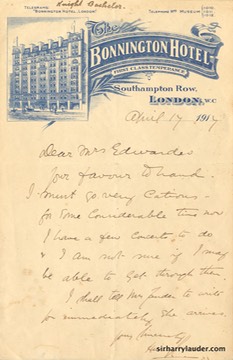 Knight Bachelor.
TELEGRAMS
"BONNINGTON HOTEL, LONDON"
TELEPHONE Nº MUSEUM
The
BONNINGTON HOTEL
FIRST CLASS TEMPERANCE
Southampton Row,
LONDON, W.C
April 17 1917
Dear Mrs Edwardes
your favour to hand.
I must go very Cautious -
for some Considerable time now
I have a few Concerts to do
& I am not sure if I may
be able to get through them
I shall tell Mr to write
you immediately he arrives.
yours Sincerely
sirharrylauder.com